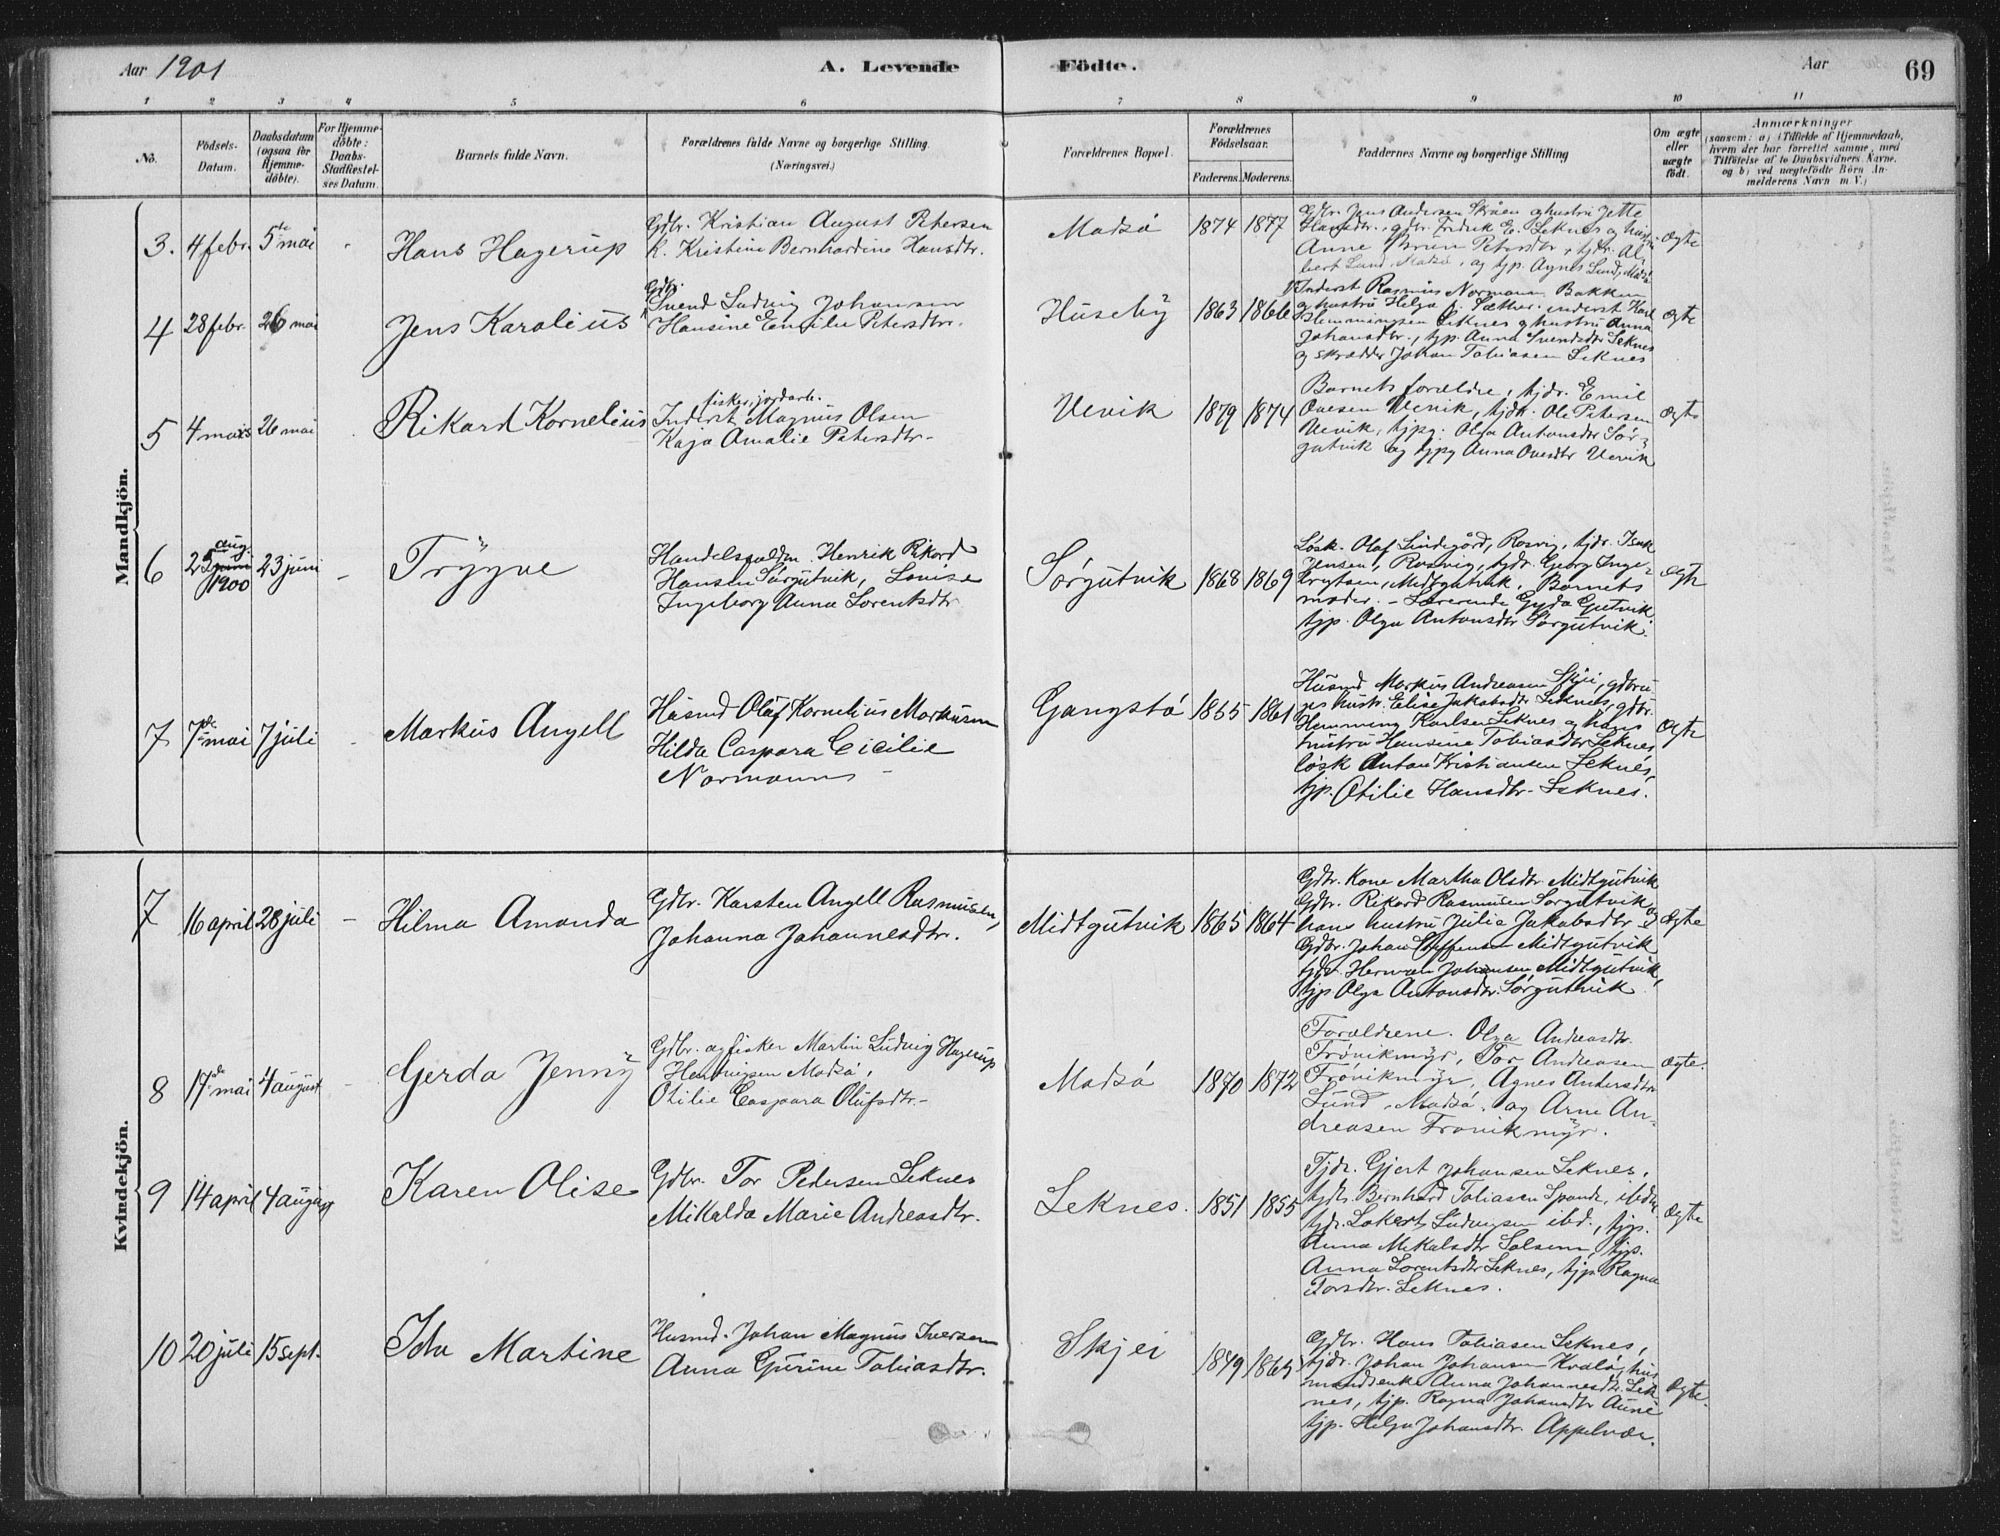 Aar 1901
A. Levende Födte.
Aar
69
1 2 3 4 5 6 7 8 9 10 11
No.
Födsels-Datum.
Daabsdatum (ogsaa for Hjemme-döbte).
For Hjemme-döbte: Daabs-Stadfæstel-ses Datum.
Barnets fulde Navn.
Forældrenes fulde Navne og borgerlige Stilling. (Næringsvei.)
Forældrenes Bopæl.
Forældrenes Födselsaar.
Faderens. Moderens.
Faddernes Navne og borgerlige Stilling
Om ægte eller uægte födt.
Anmærkninger
(saasom: a) i Tilfælde af Hjemmedaab,
hvem der har forrettet samme, med
Tilföielse af to Daabsvidners Navne.
og b) ved uægtefödte Börn An-
melderens Navn m. V.)
Mandkjön.
3. 4 febr. 5te mai - Hans Hagerup
Gdbr. Kristian August Petersen
h. Kristine Bernhardine Hansdtr.
Madsö 1874 1877
Gdbr. Jens Andersen Skåen og hustru Jette
Hansdtr., gdbr. Fredrik E. Leknes og hustru
Anne Petersdtr, tjdr. Al-
bert Lund, Madsö, og tjp. Agnes Lund, Madsö
ægte
4 28 febr. 26 mai Jens Karolius
Gdbr.
Svend Ludvig Johansen
Hansine Emilie Petersdtr.
Huseby 1863 1866
Inderst Rasmus Normann Bakken
og hustru Helga J. Sæther, inderst Karl
Hemmingsen Leknes og hustru Anna
Johansdtr., tjp. Anna Svendsdtr Leknes
og skrædder Johan Tobiasen Leknes
ægte
5 4 mars 26 mai Rikard Kornelius
fisker, jordarb.
Inderst Magnus Olsen
Kaja Amalie Petersdtr.
Uevik 1879 1874
Barnets forældre, tjdr. Emil
Ovesen Uevik, tjdr. Ole Petersen
Uevik, tjpg. Olga Antonsdtr Sør-
gutvik og tjpg Anna Ovesdtr Uevik
ægte
6 25 aug. juni 1900 23 juni - Trygve
Handelsfuldm. Henrik Rikard
Hansen Sørgutvik, Lovise
Ingeborg Anna Lorentsdtr
Sørgutvik 1868 1869
Løsk. Olaf Lindegård, Rosvig, tjdr. Isak
Jensen, Rosvig, tjdr. Georg Inge-
brigtsen, Midtgutvik. Barnets
moder. - Lærerinde Gyda Gutvik
tjp. Olga Antonsdtr Sørgutvik.
ægte
7 7de mai 7 juli Markus Angell
Husmd Olaf Kornelius Markusen
Hilda Caspara Cicilie
Normann
Gangstö 1865 1861
Husmd Markus Andreasen Skjei, gdbru-
ges hustr. Elise Jakobsdtr Leknes, gdbr.
Hemming Karlsen Leknes og hans
hustru Hansine Tobiasdtr Leknes,
løsk Anton Kristiansen Leknes,
tjp. Otilie Hansdtr. Leknes.
ægte
Kvindekjön.
7 16 april 28 juli - Hilma Amanda
Gdbr. Karsten Angell Rasmusen,
Johanna Johannesdtr.
Midtgutvik 1865 1864
Gdbr. Kone Martha Olsdtr Midtgutvik
Gdbr. Rikard Rasmusen Sørgutvik og
hans hustru Julia Jakobsdtr
Gdbr. Johan Steffensen Midtgutvik
tjdr. Herman Johansen Midtgutvik,
tjp Olga Antonsdtr. Sørgutvik
Ægte
8 17de mai 4 august - Gerda Jenny
Gdbr. og fisker Martin Ludvig Hagerup
Henningsen Madsö,
Otilie Caspara Olufsdtr.
Madsö 1870 1872
Forældrene. Olga Andreasdtr.
Frøvikmyr, Tor Andreasen
Frøvikmyr, Agnes Andersdtr
Lund, Madsö. og Arne An-
dreasen Frøvikmyr.
ægte.
9 14 april 4 august Karen Olise
Gdbr. Tor Pedersen Leknes
Mikalda Marie Andreasdtr.
Leknes. 1851 1855
Tjdr. Gjert Johansen Leknes,
tjdr. Bernhard Tobiasen Spande, ibidm
tjdr. Lakert Ludvigsen ibd., tjp.
Anna Mikalsdtr Solsem, tjp.
Anna Lorentsdtr Leknes, tjp Ragna
Torsdtr. Leknes.
Ægte
10 20 juli 15 sept. Ida Martine
Husmd. Johan Magnus Iversen
Anna Gurine Tobiasdtr.
Skjei 1849 1865
Gdbr. Hans Tobiasen Leknes,
tjdr. Johan Johansen Kvalö, hus-
mandsenke Anna Johannesdtr. Lek-
nes, tjp. Ragna Johansdtr Aune
tjp. Helga Johansdtr. Appelvær.
Ægte.